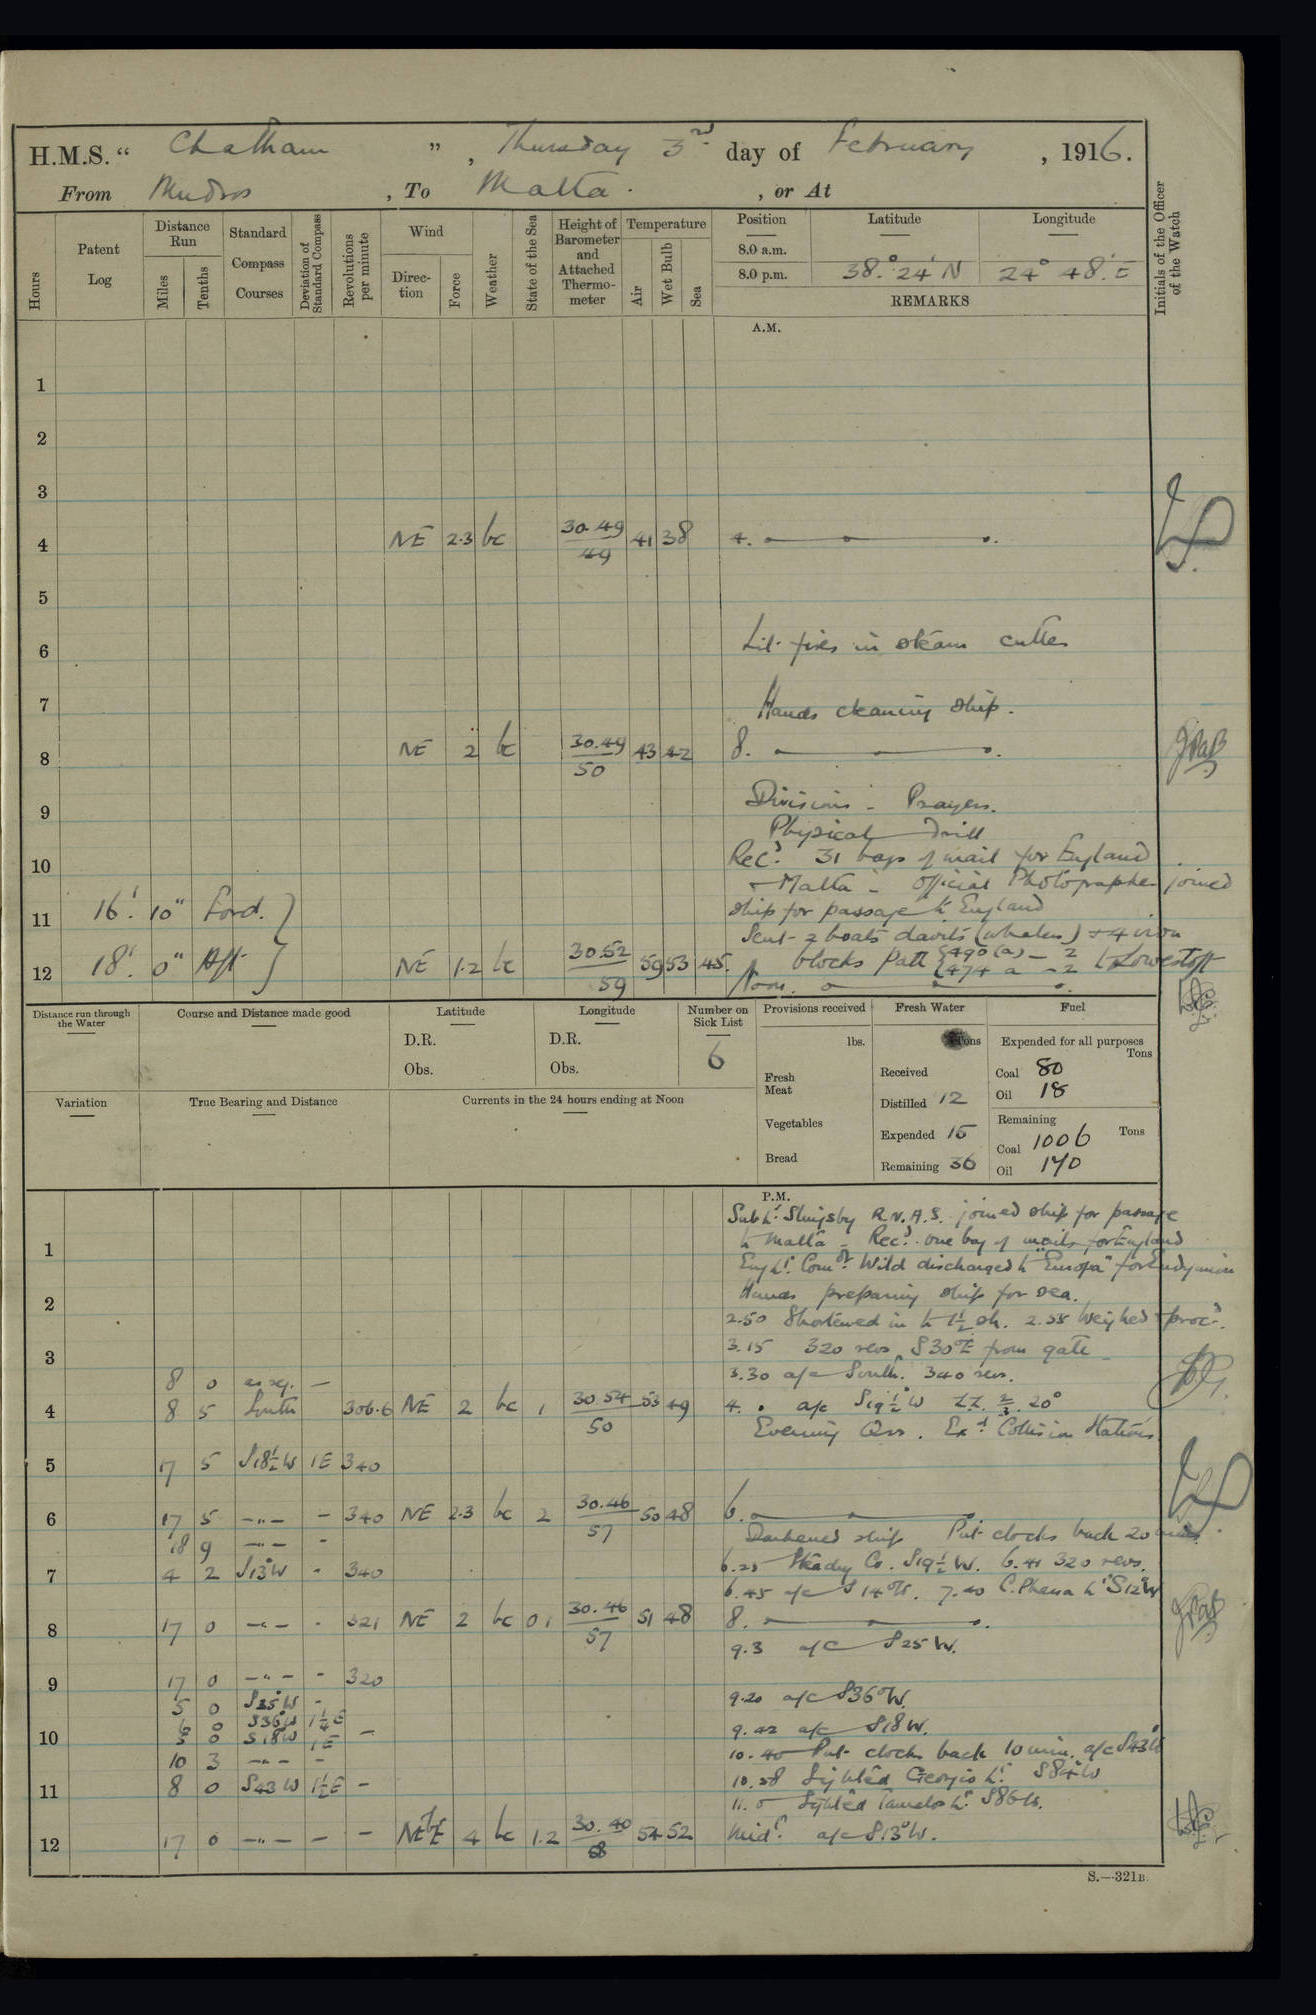 H.M.S. “ Chatham ” , Thursday 3rd day of February , 1916.
From Mudros , To Malta . , or At
Hours
Patent Log
Distance Run
Miles
Tenths
Standard Compass Courses
Deviation of Standard Compass
Revolutions per minute
Wind
Direction
Force
Weather
State of the Sea
Height of Barometer and Attached Thermometer
Temperature
Air
Wet Bulb
Sea
Position
Latitude
Longitude
8.0 a.m.
8.0 p.m. 38.° 24' N 24° 48' E
REMARKS
Initials of the Officer of the Watch
A.M.
1
2
3
4 NE 2.3 bc 30.49 49 41 38 4.
5
6 Lit fires in steam cutter
7 Hands cleaning ship.
8 NE 2 bc 30.49 50 43 42 8.
9 Divisions - Prayers.
Physical Drill
10 Recd. 31 bags of mail for England
+ Malta - Official Photographer joined
11 16'. 10" Ford. ship for passage to England
Sent 2 boats davits (whalers) + 4 iron
12 18'. 0" Aft NE 1.2 bc 30.52 59 59 53 45. blocks Patt {490(a) - 2 {474 a - 2 to Lowestoft
Noon.
Distance run through the Water
Course and Distance made good
Latitude
D.R.
Obs.
Longitude
D.R.
Obs.
Number on Sick List
6
Provisions received
lbs.
Fresh Meat
Vegetables
Bread
Fresh Water
Tons
Received
Distilled 12
Expended 15
Remaining 36
Fuel
Expended for all purposes
Tons
Coal 80
Oil 18
Remaining
Tons
Coal 1006
Oil 170
Variation
True Bearing and Distance
Currents in the 24 hours ending at Noon
P.M.
Sub Lt. Slingsby R.N.A.S. joined ship for passage
1 to Malta - Recd. one bag of mails for England
Eng Lt. Comdr. Wild discharged to "Europa" for Endymion
2 Hands preparing ship for sea.
2.50 Shortened in to 1½ sh. 2.55 Weighed + procd.
3 3.15 320 revs S30°E from gate
8 0 as req. — 3.30 a/c South. 340 revs.
4 8 5 South 306.6 NE 2 bc 1 30.54 50 53 49 4. a/c S19½°W ZZ. 2/3. 20°
Evening Qrs. Exd. Collision Stations.
5 17 5 S18½W 1E 340
6 17 5 —"— - 340 NE 2.3 bc 2 30.46 57 50 48 6.
18 9 —"— - Darkened ship Put clocks back 20 mins.
6.25 Steady Co. S19½W. 6.41 320 revs.
7 4 2 S13°W - 340
6.45 a/c S14°W. 7.40 C.Phassa Lt S12°W
8 17 0 —"— - 321 NE 2 bc 0 1 30.46 57 51 48 8.
9.3 a/c S25W.
9 17 0 —"— - 320
5 0 S25°W - 9.20 a/c S36°W.
6 0 S36°W 1¼E
10 5 0 S18W 1E — 9.42 a/c S18W.
10 3 —"— - 10.40 Put clocks back 10 min. a/c S43°W
11 8 0 S43W 1½E — 10.58 Sighted Georgio Lt. S84°W
11.0 Sighted Tamelos Lt. S86W.
12 17 0 —"— — — NEbE 4 bc 1.2 30.40 58 54 52 Midt. a/c S13°W.
S.—321B.